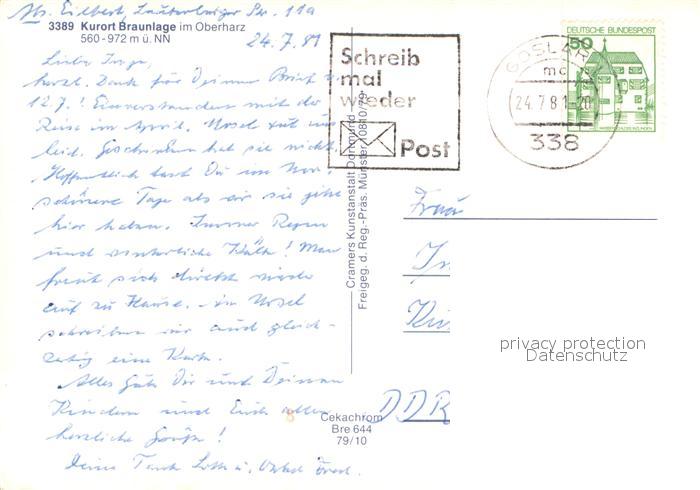 Abs. Eilbert, Lauterberger Str. 11a
3389 Kurort Braunlage im Oberharz
560-972 m ü. NN
24.7.81
Liebe Inge,
herzl. Dank für Deinen Brief v.
12.7.! Einverstanden mit der
Reise im April.
leid. Geschrieben hat sie nicht.
Hoffentlich hast Du im Nov.
schönere Tage als wir sie jetzt
hier haben. Immer Regen
und winterliche Kälte! Man
freut sich direkt wieder
auf zu Hause.
schreiben wir auch gleich-
zeitig eine Karte.
Alles Gute Dir und Deinen
Kindern und Euch allen
herzliche Grüße!
Deine Tante Lotte u. Onkel
Schreib
mal
wieder
Post
GOSLAR
mc
24.7.81-20
338
DEUTSCHE BUNDESPOST
50
Cramers Kunstanstalt Dortmund
Freigeg. d. Reg.-Präs. Münster 10810/79
Frau
In
DDR
privacy protection
Datenschutz
Cekachrom
Bre 644
79/10
8